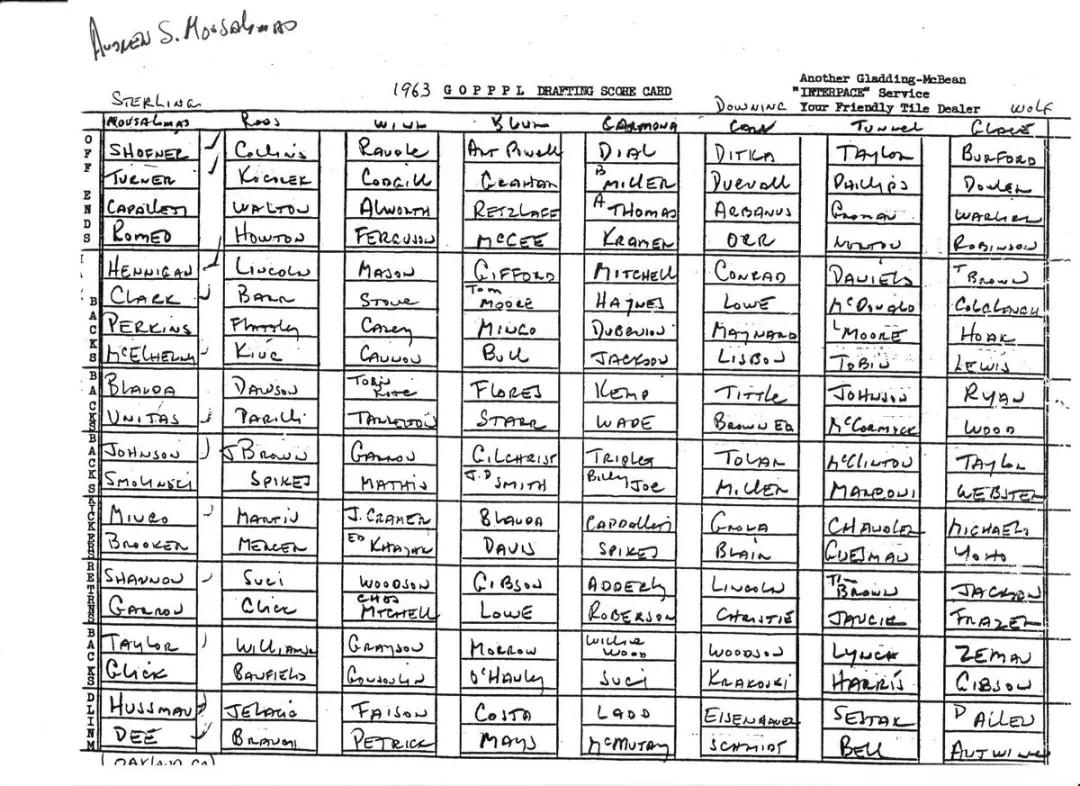 1963 G O P P P L DRAFTING SCORE CARD
Another Gladding-McBean
"INTERPACE" Service
Your Friendly Tile Dealer
STERLING DOWNING WOLF
MOUSALMAS ROSS WINK BLUM CARMONA TUNNEL
OFF ENDS
SHOFNER COLLINS ART POWELL DIAL DITKA TAYLOR BURFORD
TURNER COGGILL GRAHAM B MILLER DUEVALL PHILLIPS DOWLER
CAPPALLETI WALTON ALWORTH RETZLAFF A THOMAS ARBANUS GROMAN
ROMEO HOWTON FERGUSON McGEE KRAMER ORR NORTON ROBINSON
BACKS
HENNIGAN LINCOLN MASON GIFFORD MITCHELL CONRAD DANIELS T BROWN
CLARK BARR STONE TOM MOORE HAYNES LOWE McDONALD COLCLOUGH
PERKINS CASEY MINGO DUBENION MAYNARD L MOORE HOAK
McELHENNY KING CANNON BULL JACKSON LISBON TOBIN LEWIS
BACKS
BLANDA DAWSON TOBIN ROTE FLORES KEMP TITTLE JOHNSON RYAN
UNITAS PARILLI TARKENTON STARR WADE BROWN ED McCORMICK WOOD
BACKS
JOHNSON J BROWN GARRON GILCHRIST TRIPLET TOLAR McCLINTON TAYLOR
SMOLINSKI SPIKES MATHIS J.D SMITH BILLY JOE MILLER MARCONI WEBSTER
KICKERS
MINGO MARTIN J. CRAMER BLANDA CAPPALLETI GROZA CHANDLER MICHAELS
BROOKER MERCER ED KHAYAT DAVIS SPIKES BLAIR GUESMAN YOHO
RETRNS
SHANNON SUCI WOODSON GIBSON ADDERLY LINCOLN TIM BROWN JACKSON
GARRON GLICK CHOS MITCHELL LOWE ROBERSON CHRISTIE JANCIK FRAZER
BACKS
TAYLOR WILLIAMS GRAYSON MORROW WILLIE WOOD WOODSON LYNCH ZEMAN
GLICK BANFIELD GONSOULIN O'HANLY SUCI KRAKOSKI HARRIS GIBSON
DLINM
HUSSMAN JELACIC FAISON COSTA LADD EISENHAUER SESTAK D ALLEN
DEE PETRICK MAYS McMURTRY SCHMIDT BELL ANTWINE